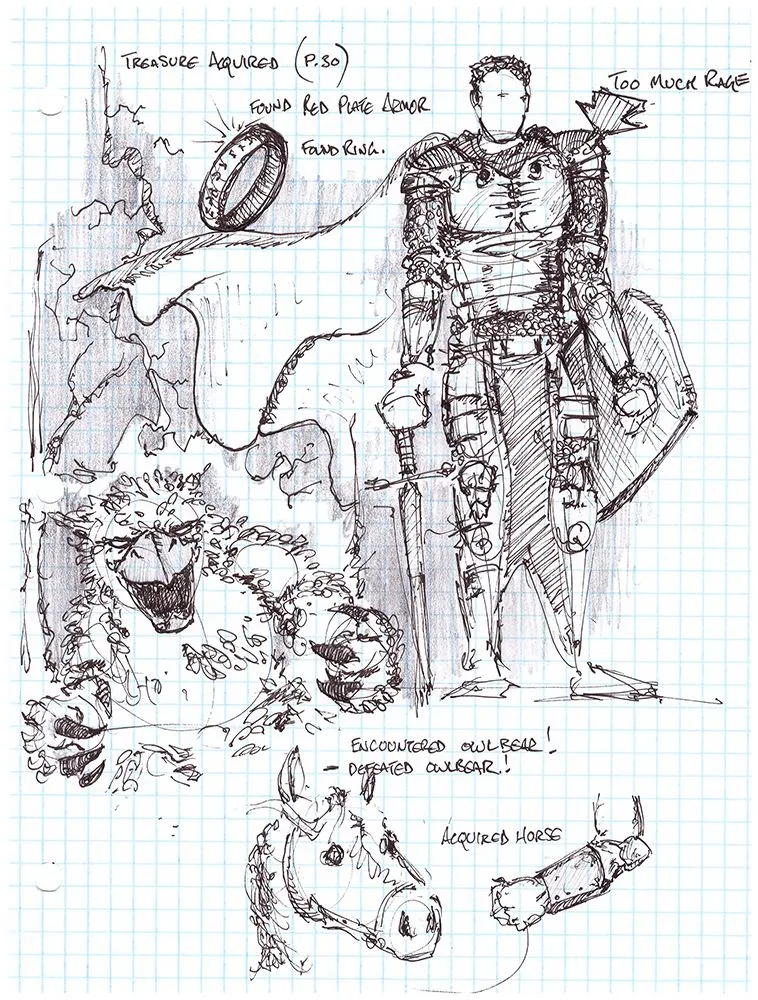 TREASURE ACQUIRED (P.30)
TOO MUCH RAGE
FOUND RED PLATE ARMOR
FOUND RING.
ENCOUNTERED OWLBEAR!
- DEFEATED OWLBEAR!
ACQUIRED HORSE